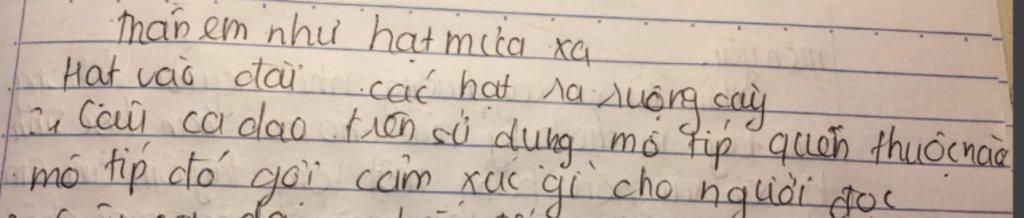 Thân em như hạt mưa xa
Hạt vào đài các hạt ra ruộng cày
Câu ca dao trên sử dụng mô típ quen thuộc nào
mô típ đó gợi cảm xúc gì cho người đọc